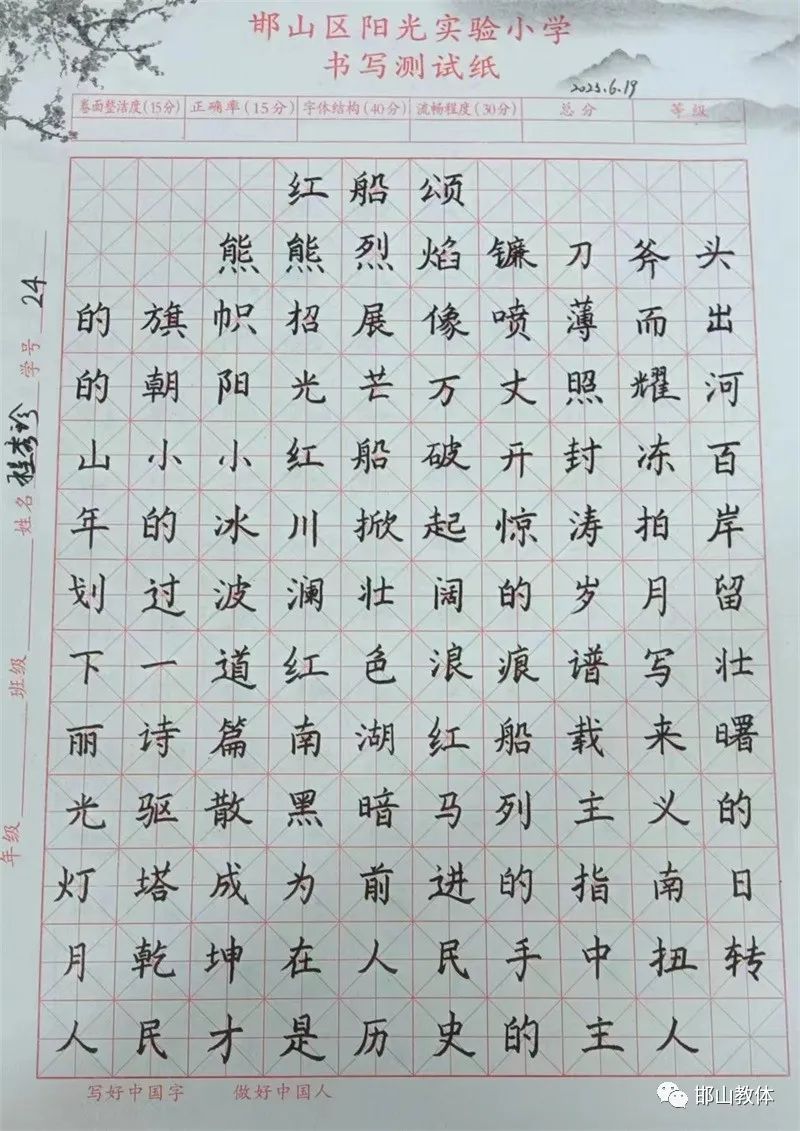 邯山区阳光实验小学
书写测试纸
2023.6.19
卷面整洁度(15分) 正确率(15分) 字体结构(40分) 流畅程度(30分) 总分 等级
红船颂
熊熊烈焰镰刀斧头
的旗帜招展像喷薄而出
的朝阳光芒万丈照耀河
山小小红船破开封冻百
年的冰川掀起惊涛拍岸
划过波澜壮阔的岁月留
下一道红色浪痕谱写壮
丽诗篇南湖红船载来曙
光驱散黑暗马列主义的
灯塔成为前进的指南日
月乾坤在人民手中扭转
人民才是历史的主人
年级 班级 姓名 程秀珍 学号 24
写好中国字 做好中国人
邯山教体